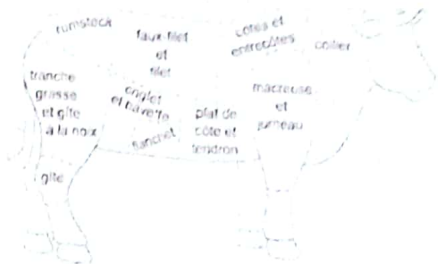 rumsteck
faux-filet
et
filet
côtes et
entrecôtes
collier
tranche
grasse
et gîte
à la noix
onglet
et bavette
flanchet
plat de
côte et
tendron
macreuse
et
jumeau
gîte